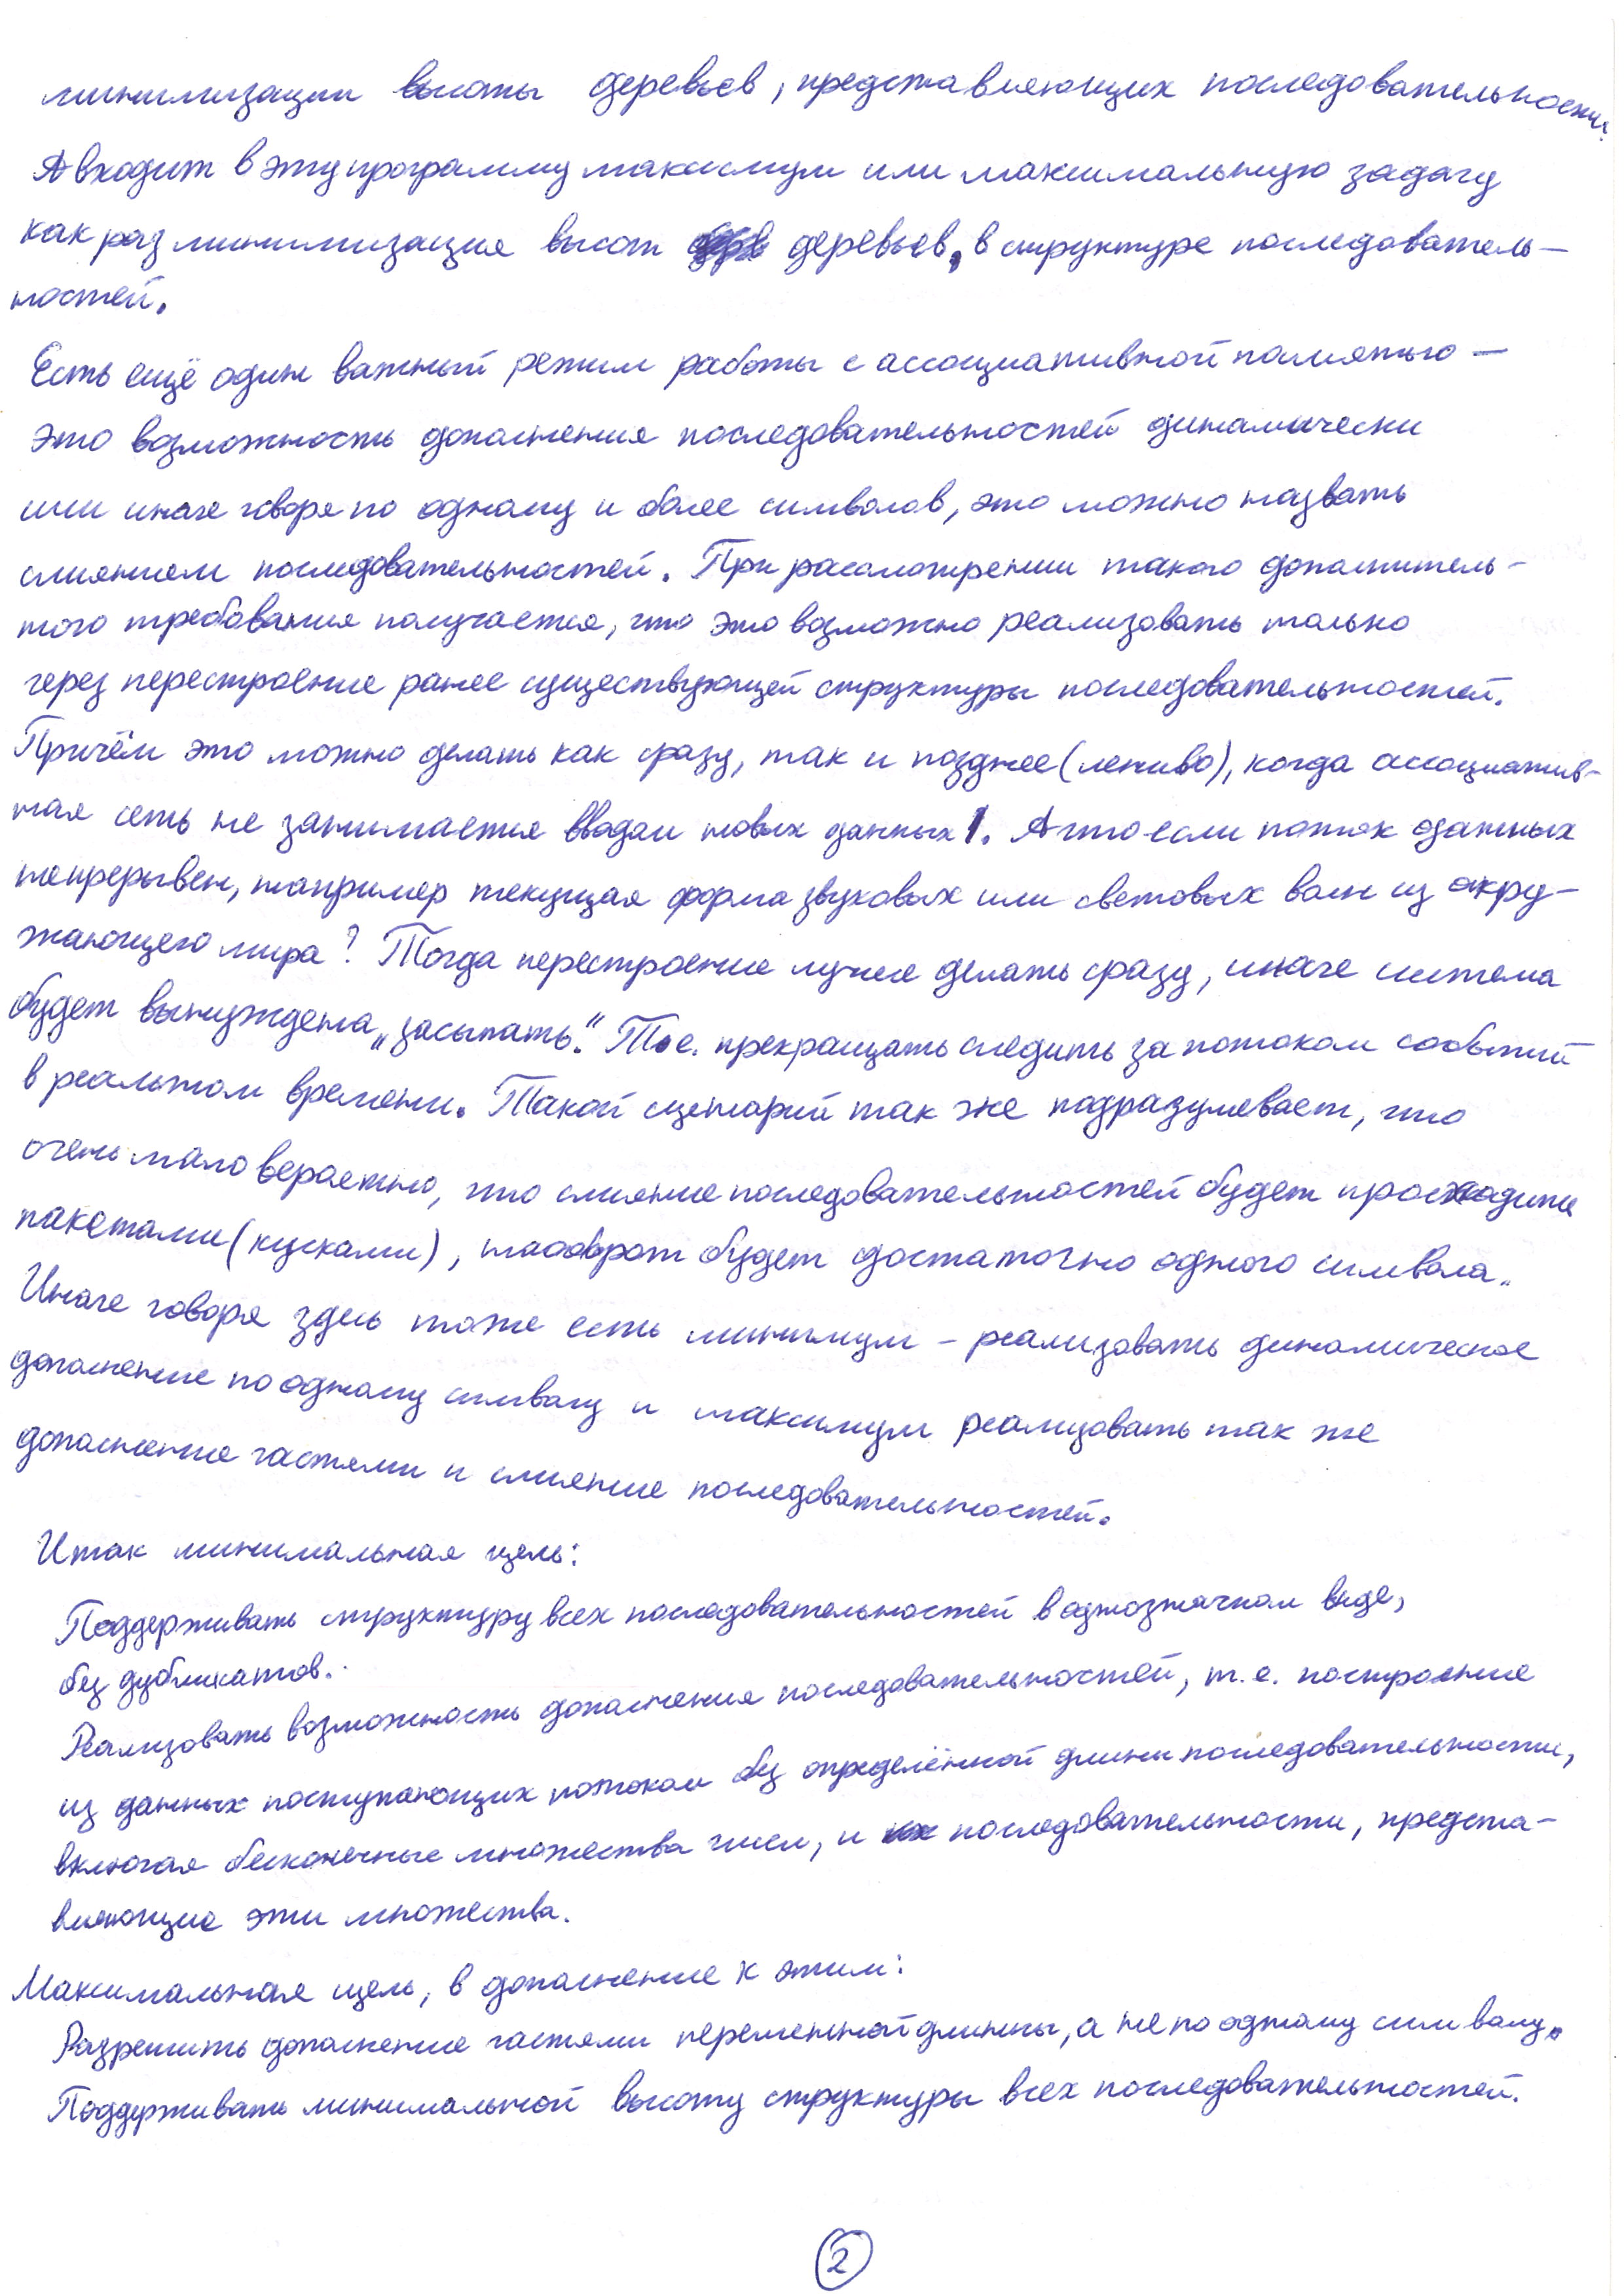 минимизации высоты деревьев, представляющих последовательности.
А входит в эту программу максимум или максимальную задачу
как раз минимизация высот деревьев, в структуре последователь-
ностей.
Есть ещё один важный режим работы с ассоциативной памятью —
это возможность дополнения последовательностей динамически
или иначе говоря по одному и более символов, это можно назвать
слиянием последовательностей. При рассмотрении такого дополнитель-
ного требования получается, что это возможно реализовать только
через перестроение ранее существующей структуры последовательностей.
Причём это можно делать как сразу, так и позднее (лениво), когда ассоциатив-
ная сеть не занимается вводом новых данных. А что если поток данных
непрерывен, например текущая форма звуковых или световых волн из окру-
жающего мира? Тогда перестроение лучше делать сразу, иначе система
будет вынуждена „засыпать". Т.е. прекращать следить за потоком событий
в реальном времени. Такой сценарий так же подразумевает, что
очень маловероятно, что слияние последовательностей будет проходить
пакетами (кусками), наоборот будет достаточно одного символа.
Иначе говоря здесь тоже есть минимум – реализовать динамическое
дополнение по одному символу и максимум реализовать так же
дополнение частями и слияние последовательностей.
Итак минимальная цель:
Поддерживать структуру всех последовательностей в однозначном виде,
без дубликатов.
Реализовать возможность дополнения последовательностей, т.е. построение
из данных поступающих потоком без определённой длины последовательности,
включая бесконечные множества чисел, и последовательности, предста-
вляющие эти множества.
Максимальная цель, в дополнение к этим:
Разрешить дополнение частями переменной длинны, а не по одному символу.
Поддерживать минимальной высоту структуры всех последовательностей.
2